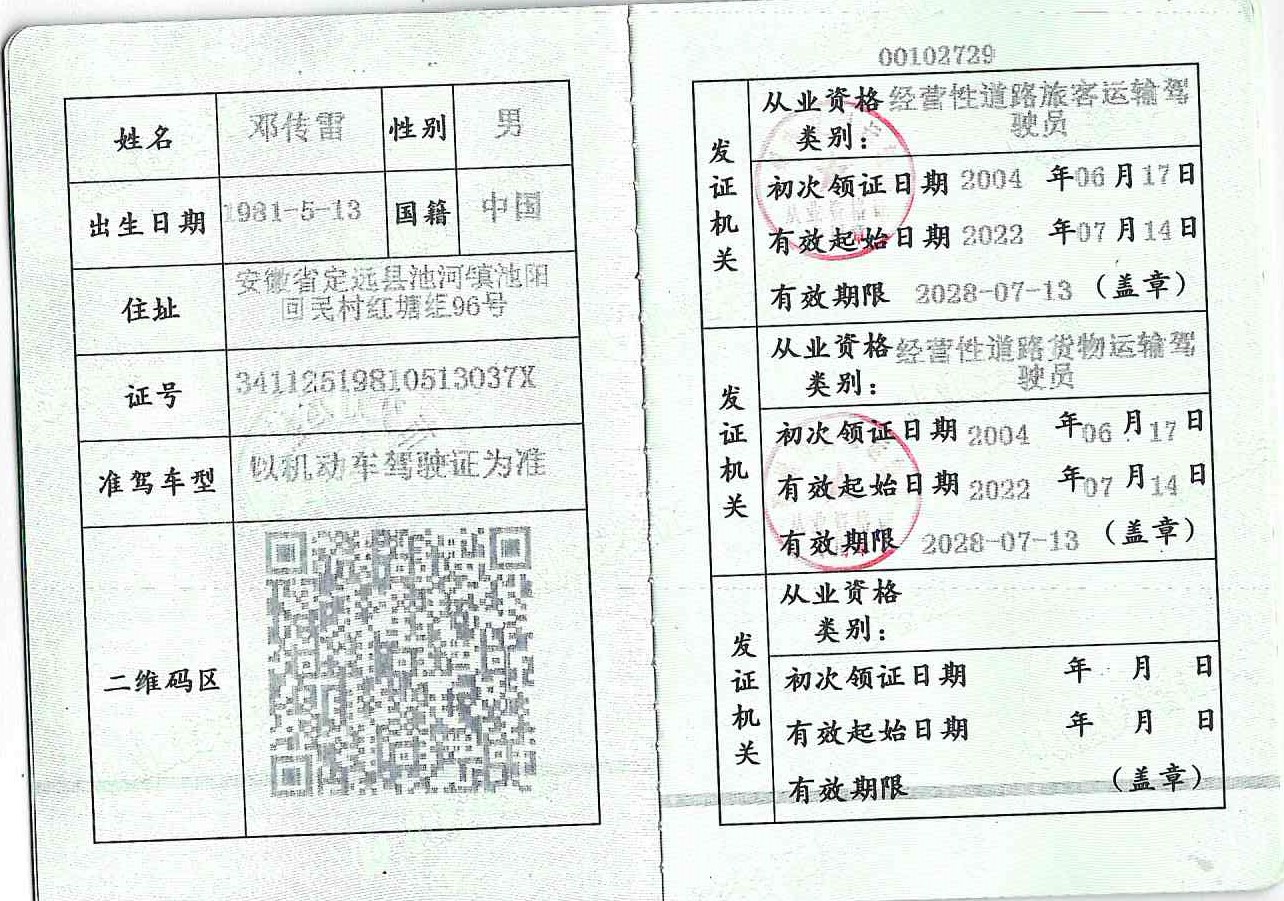 姓名 邓传雷 性别 男
出生日期 1981-5-13 国籍 中国
住址 安徽省定远县池河镇池阳
回民村红塘组96号
证号 34112519810513037X
准驾车型 以机动车驾驶证为准
二维码区
00102729
发证机关
从业资格 经营性道路旅客运输驾
类别： 驶员
初次领证日期 2004 年06月17日
有效起始日期 2022 年07月14日
有效期限 2028-07-13 （盖章）
发证机关
从业资格 经营性道路货物运输驾
类别： 驶员
初次领证日期 2004 年06月17日
有效起始日期 2022 年07月14日
有效期限 2028-07-13 （盖章）
发证机关
从业资格
类别：
初次领证日期 年 月 日
有效起始日期 年 月 日
有效期限 （盖章）